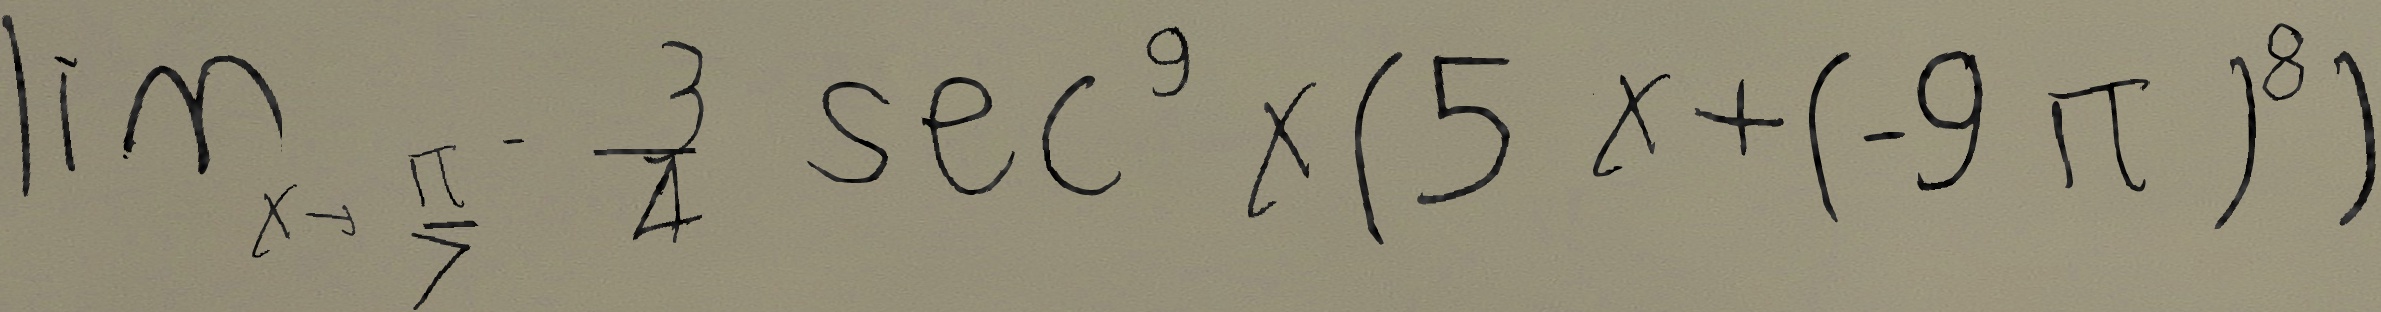 lim x→π/7⁻ 3/4 sec⁹ x(5x+(-9π)⁸)